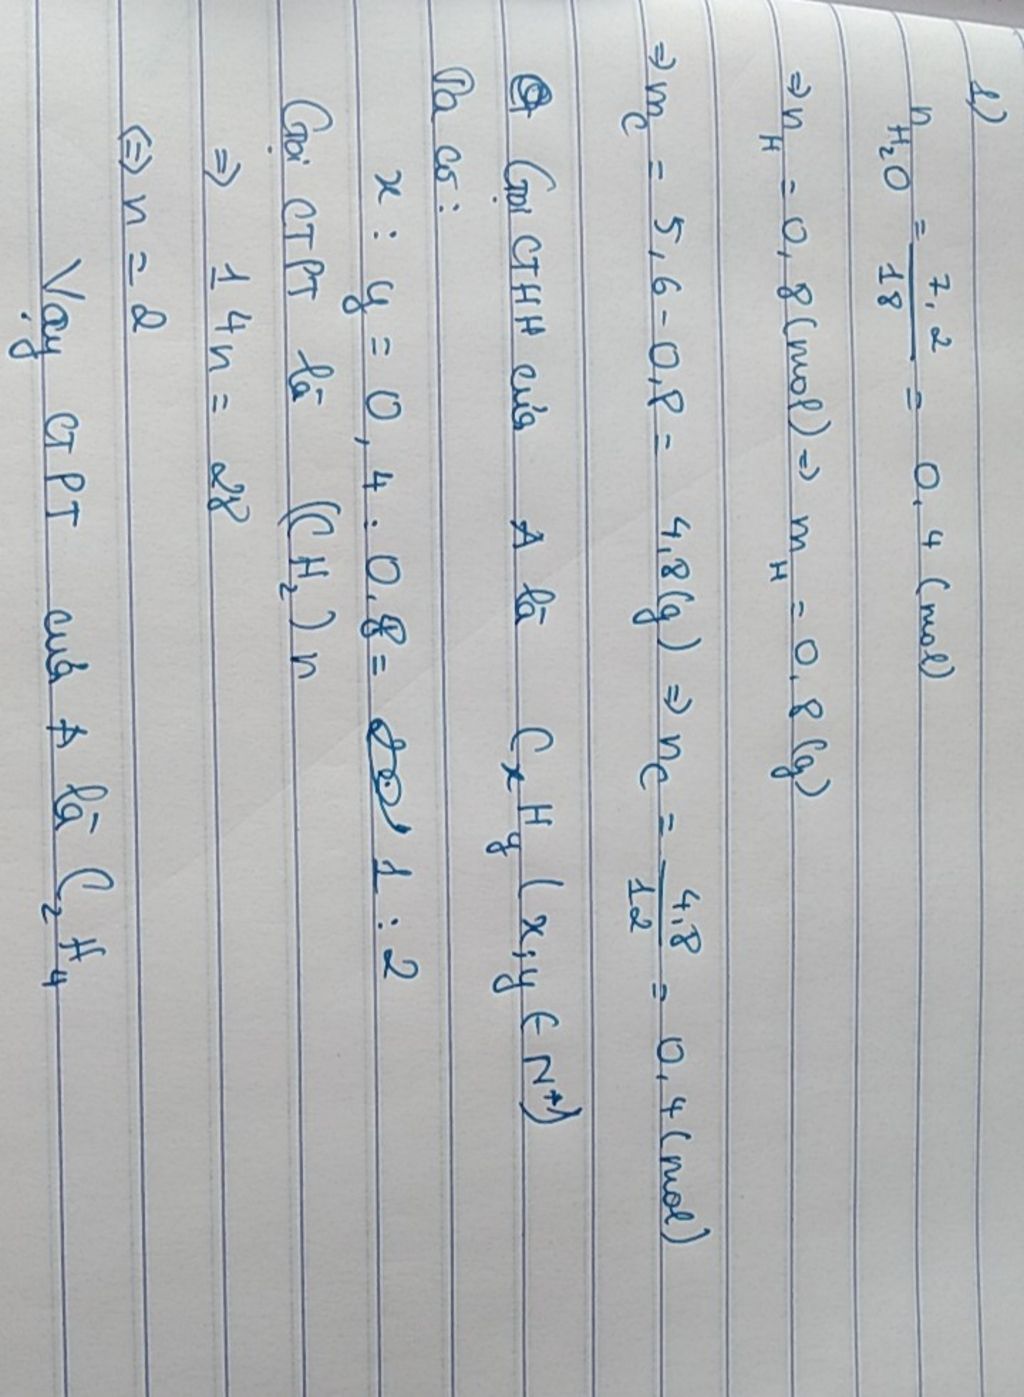 1)
n H₂O = 7,2/18 = 0,4 (mol)
⇒ n H = 0,8 (mol) ⇒ m H = 0,8 (g)
⇒ m C = 5,6 - 0,8 = 4,8 (g) ⇒ n C = 4,8/12 = 0,4 (mol)
Gọi CTHH của A là CxHy (x;y ∈ N+)
Ta có:
x : y = 0,4 : 0,8 = 1 : 2
Gọi CTPT là (CH₂)n
⇒ 14n = 28
⇔ n = 2
Vậy CTPT của A là C₂H₄